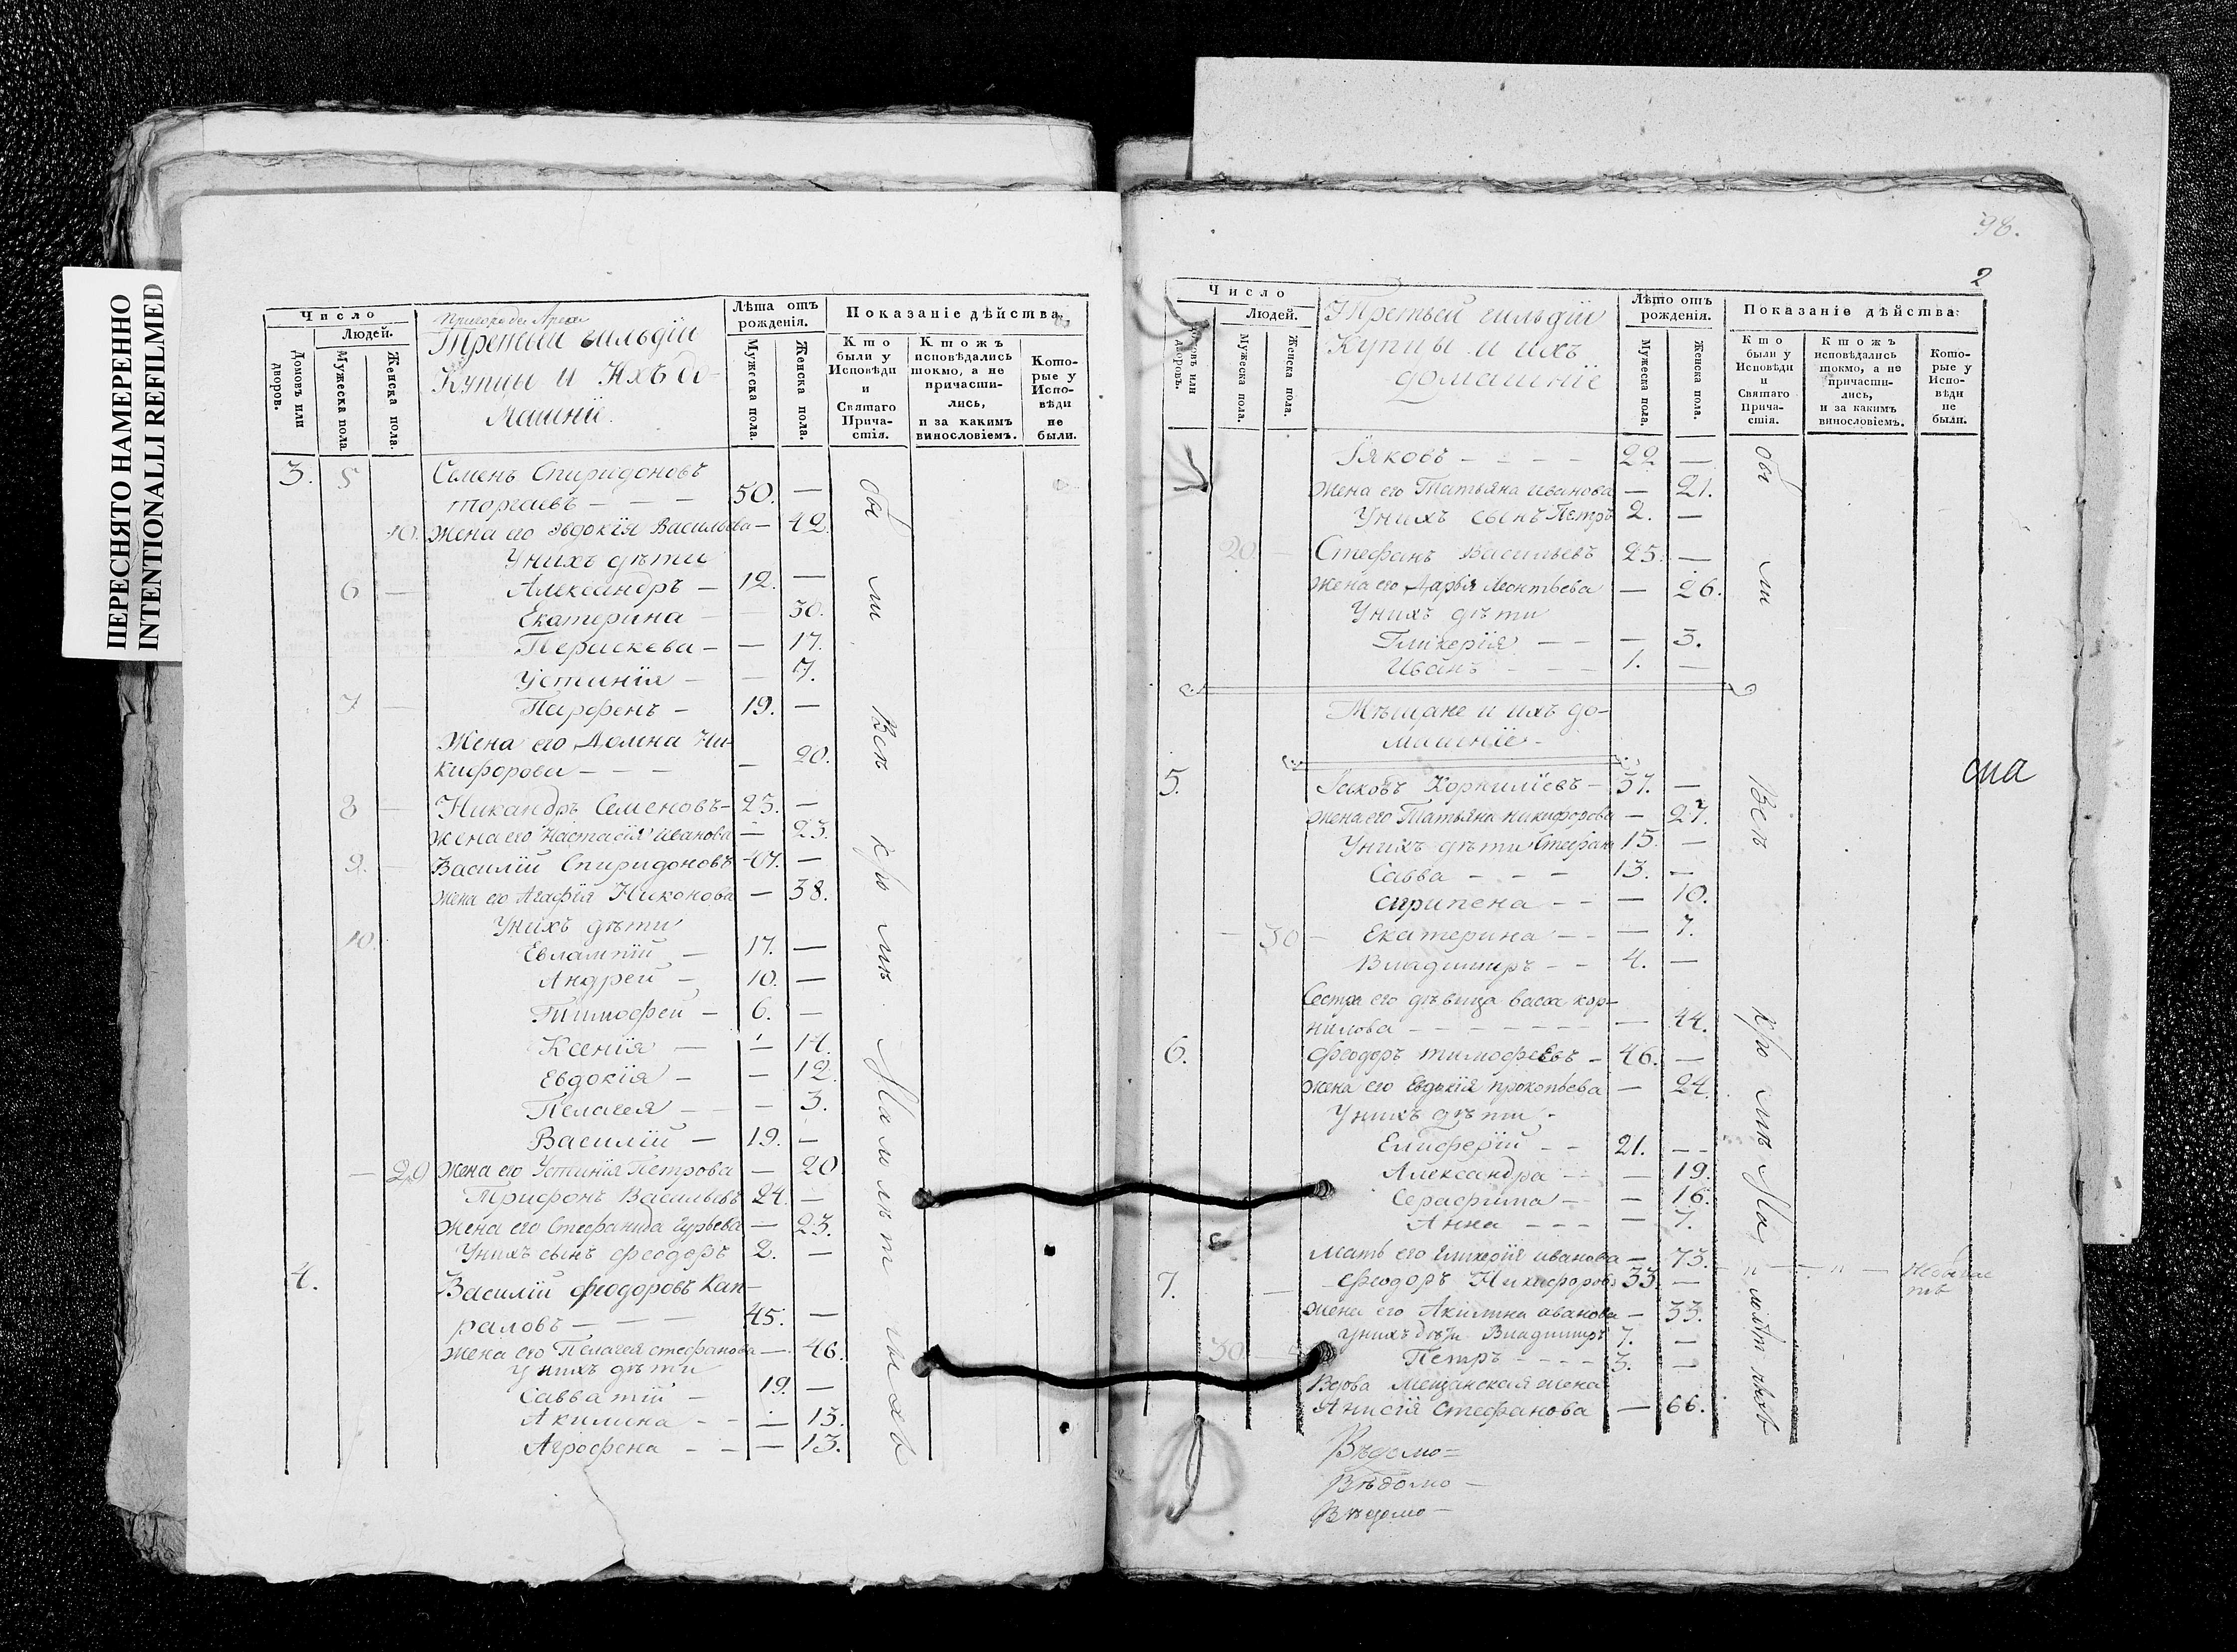 ПЕРЕСНЯТО НАМЕРЕННО
INTENTIONALLI REFILMED
Число
Людей.
Домовъ или дворовъ.
Мужеска пола.
Женска пола.
Третьей гильдіи
Купцы и Ихъ до-
машніе.
Лѣта отъ рожденія.
Мужеска пола.
Женска пола.
Показаніе дѣйства.
Кто были у Исповѣди и Святаго Прича-стія.
Ктожъ исповѣдались токмо, а не причасти-лись, и за какимъ винословіемъ.
Кото-рые у Испо-вѣди не были.
3. 5 Семенъ Спиридоновъ
торгаевъ — — — 50. —
10. Жена его Евдокія Васильева — 42.
У нихъ дѣти
6 — Александръ — 12. —
Екатерина — — 30.
Перискева — — 17.
Устинія — — 7.
7 — Парфенъ — 19. —
Жена его Домна Ни-
кифорова — — — — 20.
8 — Никандръ Семеновъ — 23. —
Жена его Настасія Иванова — 23.
9. — Василій Спиридоновъ 47. —
Жена его Агафія Никонова — 38.
У нихъ дѣти
10. Евлампій — 17. —
Андрей — 10. —
Тимофей — 6. —
Ксенія — — 14.
Евдокія — — 12.
Пелагея — — 3.
Василій — 19. —
— 20 Жена его Устинія Петрова — 20
Трифонъ Васильевъ 24. —
Жена его Стефанида Гурьева — 23.
У нихъ сынъ Феодоръ 2. —
4. Василій Феодоровъ Кап-
раловъ — — — 45. —
Жена его Пелагея Стефанова — 46.
У нихъ дѣти
Савватій — 19. —
Акилина — — — 15.
Агрофена — — — 13.
бы ли Всѣ кро мѣ Ма ло лѣт ныхъ
98.
2
Число
Людей.
Домовъ или дворовъ.
Мужеска пола.
Женска пола.
Третьей гильдіи
Купцы и ихъ
домашніе
Лѣто отъ рожденія.
Мужеска пола.
Женска пола.
Показаніе дѣйства:
Кто были у Исповѣди и Святаго Прича-стія.
Ктожъ исповѣдались токмо, а не причасти-лись, и за какимъ винословіемъ.
Кото-рые у Испо-вѣди не были.
Іяковъ — — — — 22 —
Жена его Татьяна Иванова — 21.
У нихъ сынъ Петръ 2. —
20 — Стефанъ Васильевъ 25. —
Жена его Дарья Леонтьева — 26.
У нихъ дѣти
Гликерія — — — 3.
Иванъ — — — 1. —
Мѣщане и ихъ до-
машніе —
5. Іаковъ Корниліевъ — 37. —
Жена его Татьяна Никифорова — 27.
У нихъ дѣти Стефанъ 15. —
Савва — — — 13. —
агрипена — — — 10.
— 30 — Екатерина — — — 7.
Владимиръ — — 4. —
Сестра его дѣвица васса кор-
нилова — — — — — — 44.
6. Феодоръ тимофеевъ — 46. —
Жена его Евдокія прокопьева — 24
У нихъ дѣти —
Елисферій — — 21. — —
Александра — — — 19.
Серафима — — 16.
Анна — — — — 7.
Мать его Гликерія иванова — 73.
7. — Феодоръ Никифоровъ 33. —
Жена его Акилина иванова — 33.
30 У нихъ дѣти Владимиръ 7. —
Петръ — — — — 3. —
Вдова Мещанская жена
Анисія Стефанова — 66.
бы ли Всѣ кро мѣ Ма лолѣт ныхъ
Вѣдомо —
Вѣдомо —
Вѣдомо —